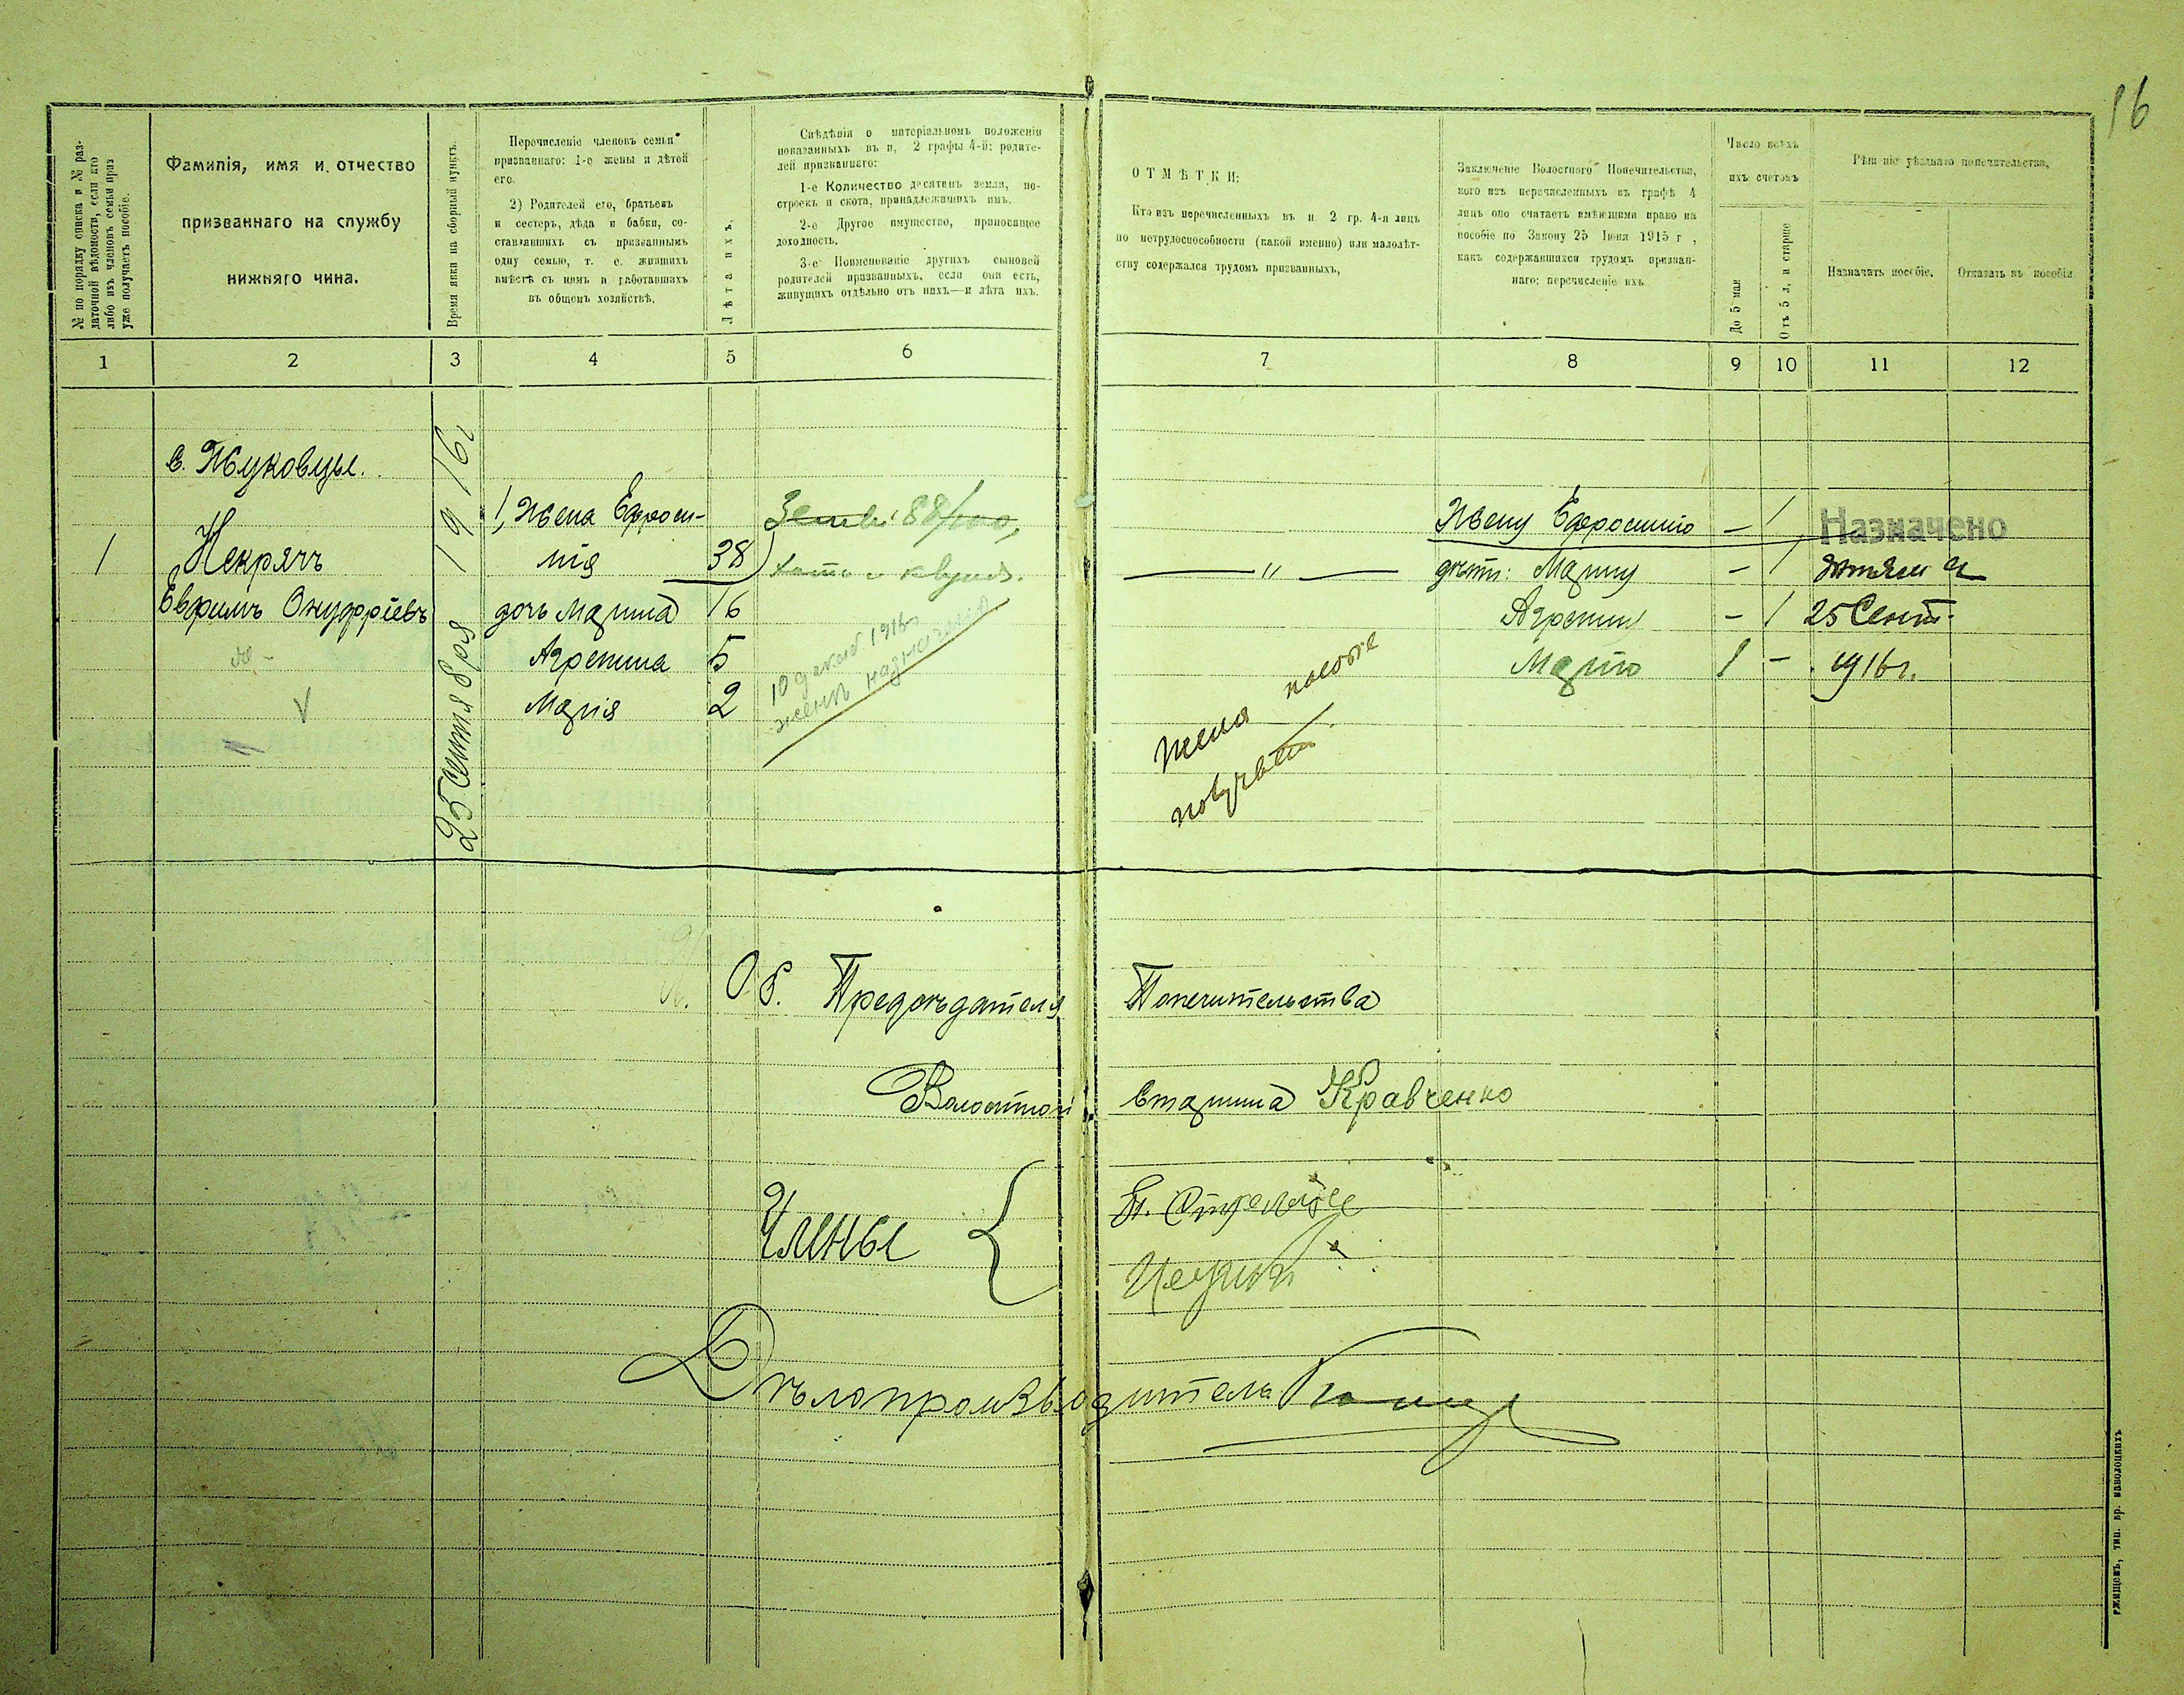 16
№ по порядку списка и № раз-
даточной вѣдомости, если кто
либо изъ членовъ семьи приз
уже получаетъ пособіе.
Фамилія, имя и отчество
призваннаго на службу
нижняго чина.
Время явки на сборный пунктъ.
Перечисленіе членовъ семьи
призваннаго: 1-е жены и дѣтей
его.
2) Родителей его, братьевъ
и сестеръ, дѣда и бабки, со-
ставлявшихъ съ призваннымъ
одну семью, т. е. жившихъ
вмѣстѣ съ нимъ и работавшихъ
въ общемъ хозяйствѣ.
Лѣта ихъ.
Свѣдѣнія о матеріальномъ положеніи
показанныхъ въ п, 2 графы 4-й: родите-
лей призваннаго:
1-е Количество десятинъ земли, по-
строекъ и скота, принадлежащихъ имъ.
2-е Другое имущество, приносящее
доходность.
3-е Поименованіе другихъ сыновей
родителей призванныхъ, если они есть,
живущихъ отдѣльно отъ нихъ—и лѣта ихъ.
ОТМѢТКИ:
Кто изъ перечисленныхъ въ п. 2 гр. 4-я лицъ
по нетрудоспособности (какой именно) или малолѣт-
ству содержался трудомъ призванныхъ,
Заключеніе Волостного Попечительства,
кого изъ перечисленныхъ въ графѣ 4
лицъ оно считаетъ имѣющими право на
пособіе по Закону 25 Іюня 1915 г ,
какъ содержавшихся трудомъ призван-
наго; перечисленіе ихъ
Число всѣхъ
ихъ счетовъ
До 5 мал
Отъ 5 л. и старше
Рѣшеніе уѣзднаго попечательства,
Назначать пособіе.
Отказать въ пособіи
1 2 3 4 5 6 7 8 9 10 11 12
с. Жуковцы.
25 Сентября 1916 г
1 Некрячъ
Евфимъ Онуфріевъ
1, Жена Ефроси-
нія 38
дочь Марина 16
Агрепина 5
Марія 2
Земли 88/100,
хата и клуня.
10 декаб 1916 г
женѣ назначено
— " —
жена пособіе
получаетъ
Жену Ефросинію — 1
дѣти: Марину — 1
Агрепину — 1
Марію 1 —
Назначено
дѣтямъ съ
25 Сент.
1916 г.
Об. Предсѣдателя Попечительства
Волостной Старшина Кравченко
Члены {
Дѣлопроизводитель
ржищевъ, тип. бр. Заволоцкихъ